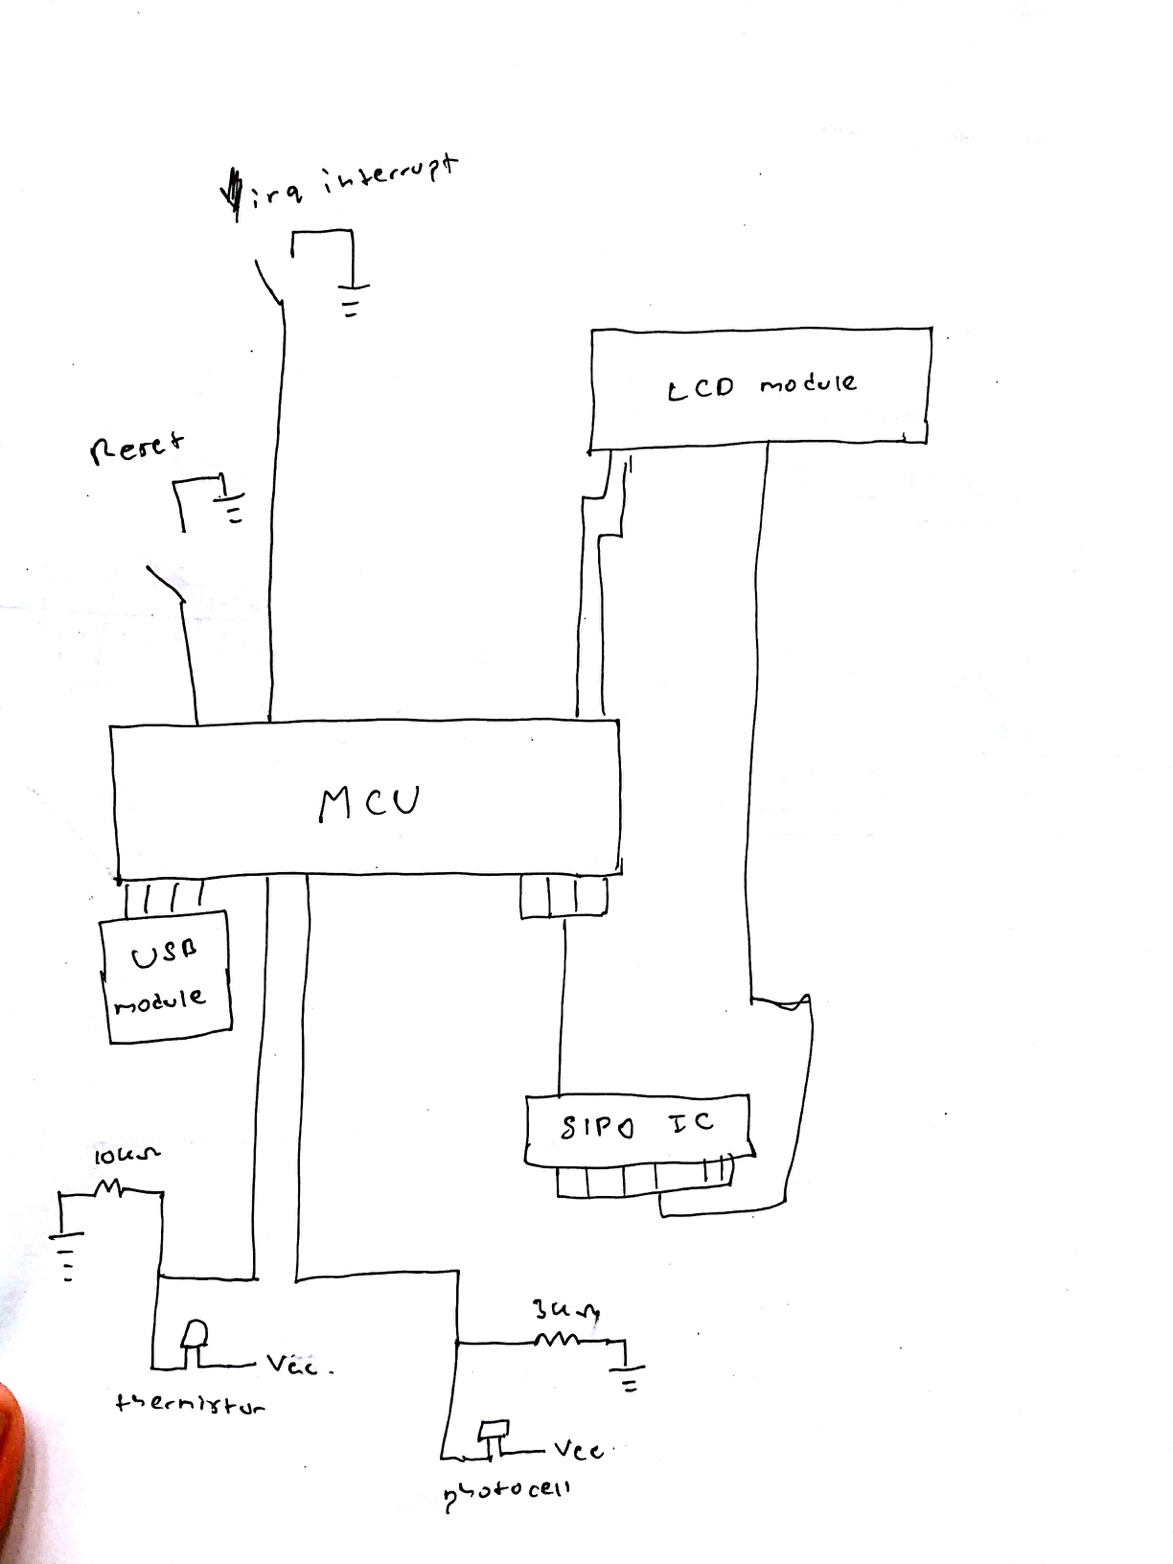 irq interrupt
LCD module
Reset
MCU
USB
module
SIPO IC
10kΩ
3kΩ
Vcc.
thermistor
Vcc.
photocell